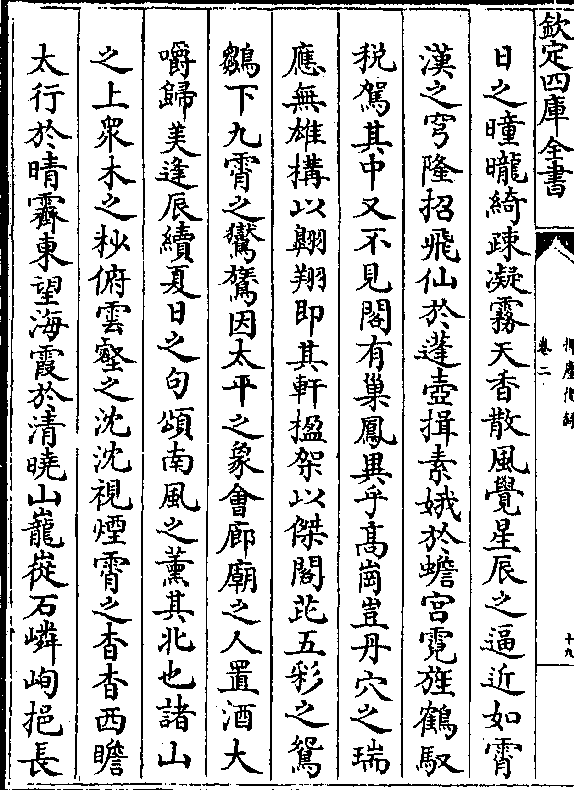 欽定四庫全書
揮麈後錄
卷二
十九
日之曈曨綺疎凝霧天香散風覺星辰之逼近如霄
漢之穹隆招飛仙於蓬壺揖素娥於蟾宮霓旌鶴馭
税駕其中又不見閣有巢鳳異乎髙崗豈丹穴之瑞
應無雄搆以翺翔即其軒楹架以傑閣茈五彩之鵷
鶵下九霄之鸞鷟因太平之象會廊廟之人置酒大
嚼歸美逢辰續夏日之句頌南風之薰其北也諸山
之上衆木之杪俯雲壑之沈沈視煙霄之杳杳西瞻
太行於晴霽東望海霞於清曉山巃嵸石嶙峋挹長